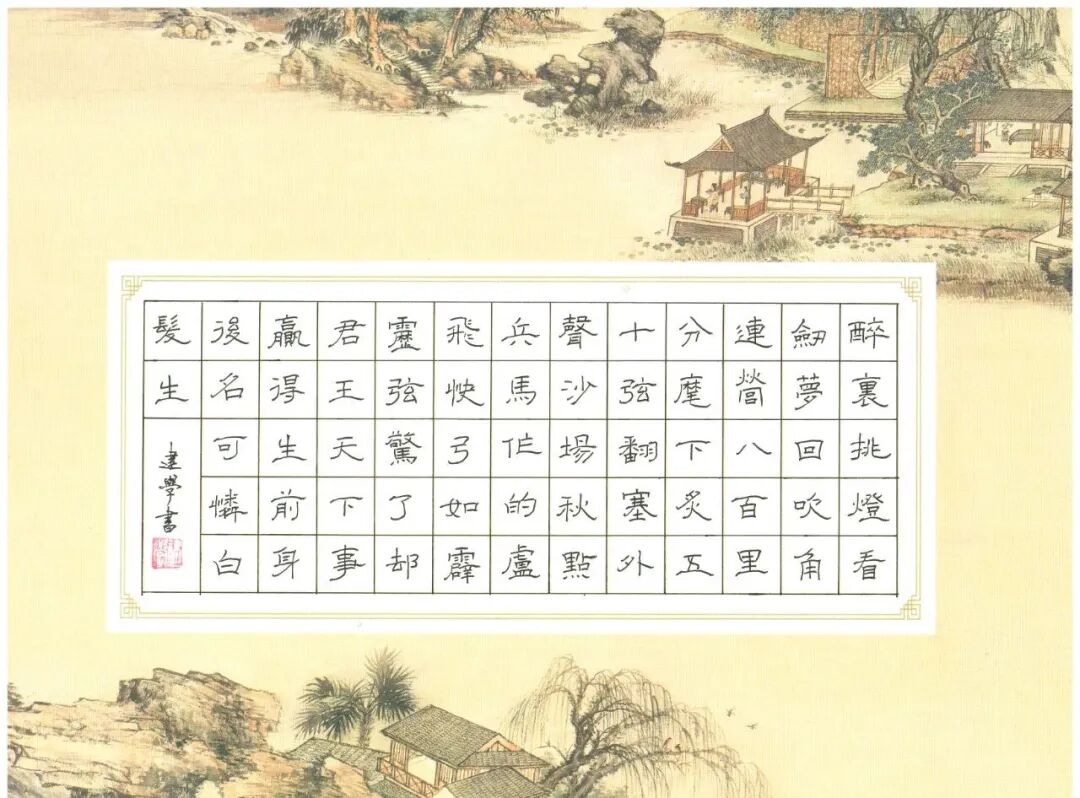 醉裏挑燈看
劒夢回吹角
連營八百里
分麾下炙五
十弦翻塞外
聲沙場秋點
兵馬作的盧
飛快弓如霹
靂弦驚了却
君王天下事
贏得生前身
後名可憐白
髮生
建學書